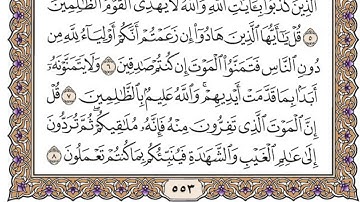 الَّذِينَ كَذَّبُوا۟ بِـَٔايَـٰتِ ٱللَّهِ وَٱللَّهُ لَا يَهْدِى ٱلْقَوْمَ ٱلظَّـٰلِمِينَ
٥ قُلْ يَـٰٓأَيُّهَا ٱلَّذِينَ هَادُوٓا۟ إِن زَعَمْتُمْ أَنَّكُمْ أَوْلِيَآءُ لِلَّهِ مِن
دُونِ ٱلنَّاسِ فَتَمَنَّوُا۟ ٱلْمَوْتَ إِن كُنتُمْ صَـٰدِقِينَ ٦ وَلَا يَتَمَنَّوْنَهُۥٓ
أَبَدًۢا بِمَا قَدَّمَتْ أَيْدِيهِمْ ۚ وَٱللَّهُ عَلِيمٌۢ بِٱلظَّـٰلِمِينَ ٧ قُلْ
إِنَّ ٱلْمَوْتَ ٱلَّذِى تَفِرُّونَ مِنْهُ فَإِنَّهُۥ مُلَـٰقِيكُمْ ۖ ثُمَّ تُرَدُّونَ
إِلَىٰ عَـٰلِمِ ٱلْغَيْبِ وَٱلشَّهَـٰدَةِ فَيُنَبِّئُكُم بِمَا كُنتُمْ تَعْمَلُونَ ٨
٥٥٣